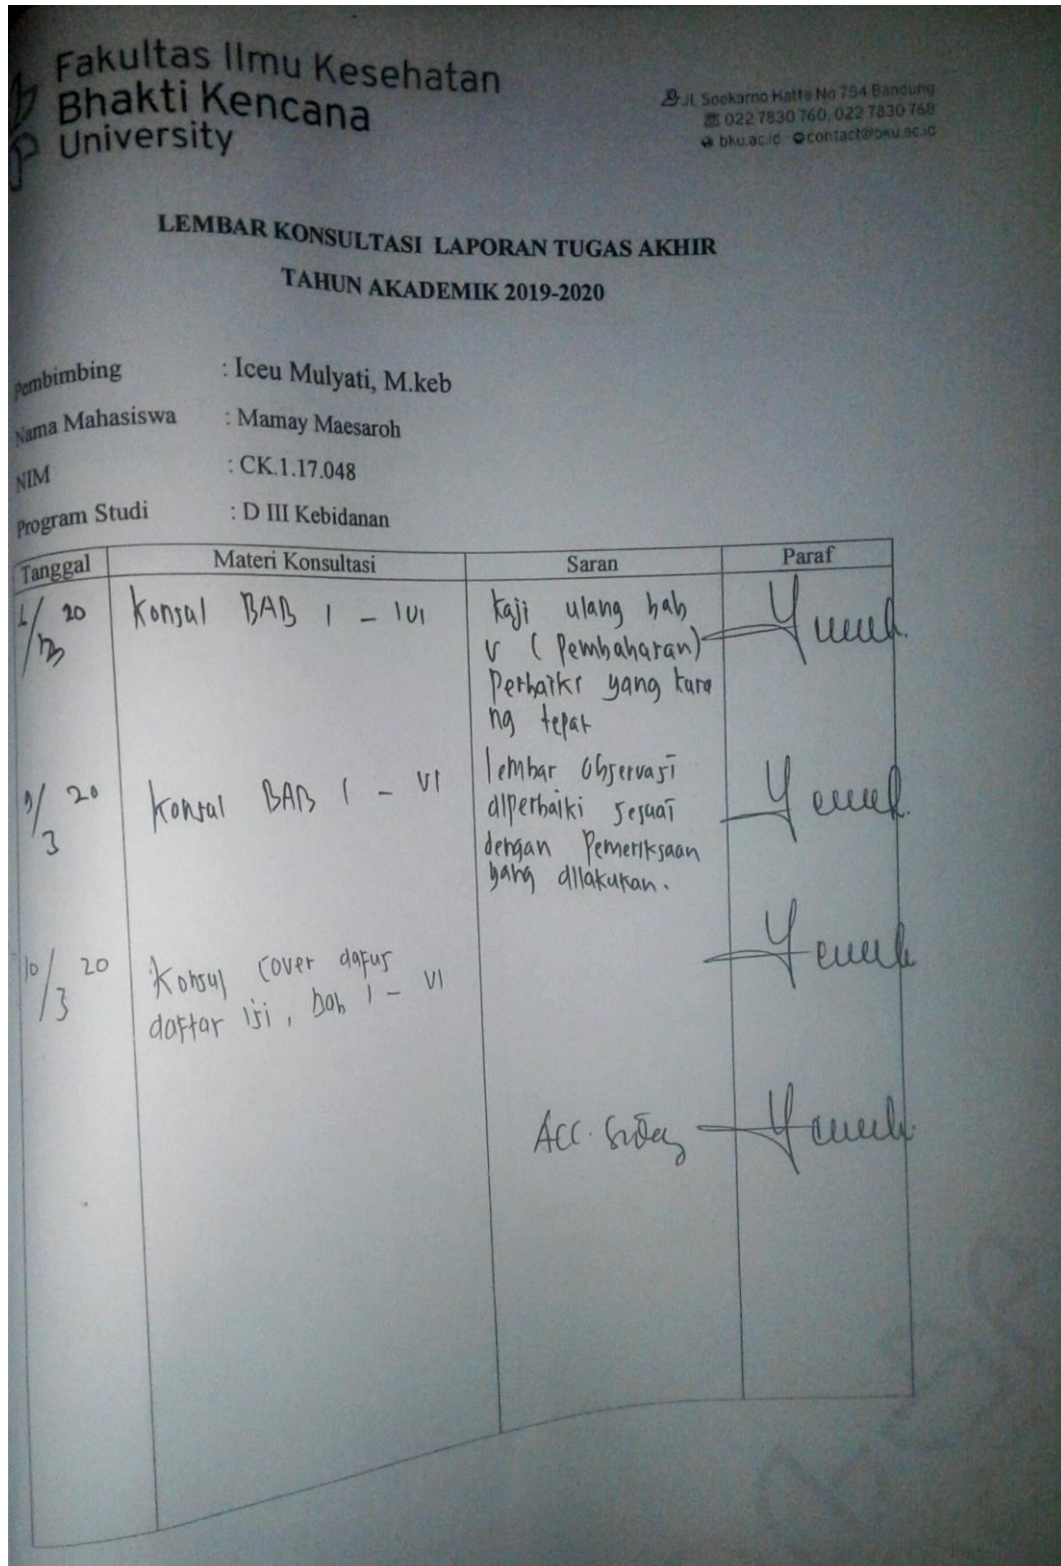 Fakultas Ilmu Kesehatan
Bhakti Kencana
University
Jl. Soekarno Hatta No 754 Bandung
022 7830 760, 022 7830 768
bku.ac.id contact@bku.ac.id
LEMBAR KONSULTASI LAPORAN TUGAS AKHIR
TAHUN AKADEMIK 2019-2020
Pembimbing : Iceu Mulyati, M.keb
Nama Mahasiswa : Mamay Maesaroh
NIM : CK.1.17.048
Program Studi : D III Kebidanan
Tanggal Materi Konsultasi Saran Paraf
20 Konsul BAB I - kaji ulang bab
V (Pembahasan)
Perbaiki yang kura
ng tepat
9/3 20 Konsul BAB I - VI lembar Observasi
diperbaiki sesuai
dengan Pemeriksaan
yang dilakukan.
10/3 20 Konsul cover dafus
daftar isi, bab I - VI
ACC. Sidang